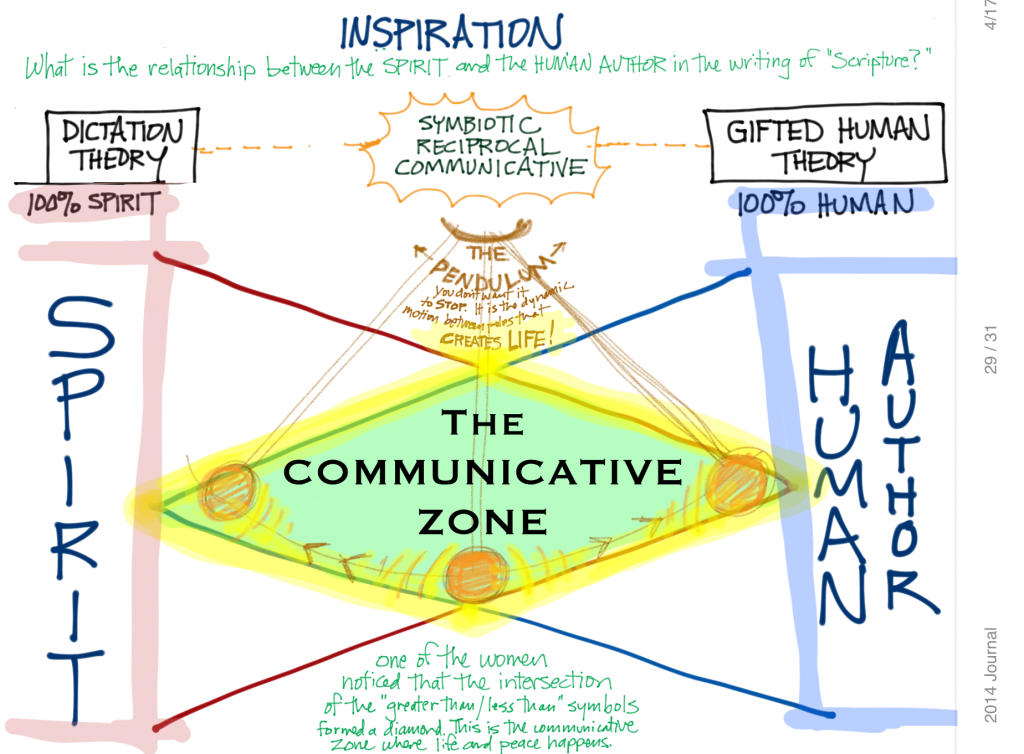 INSPIRATION
What is the relationship between the SPIRIT and the HUMAN AUTHOR in the writing of "Scripture?"
DICTATION
THEORY
SYMBIOTIC
RECIPROCAL
COMMUNICATIVE
GIFTED HUMAN
THEORY
100% SPIRIT
100% HUMAN
THE
PENDULUM
you don't want it
to STOP. It is the dynamic
motion between poles that
CREATES LIFE!
SPIRIT
THE
COMMUNICATIVE
ZONE
HUMAN
AUTHOR
one of the women
noticed that the intersection
of the "greater than/less than" symbols
formed a diamond. This is the communicative
zone where life and peace happens.
4/17
29 / 31
2014 Journal